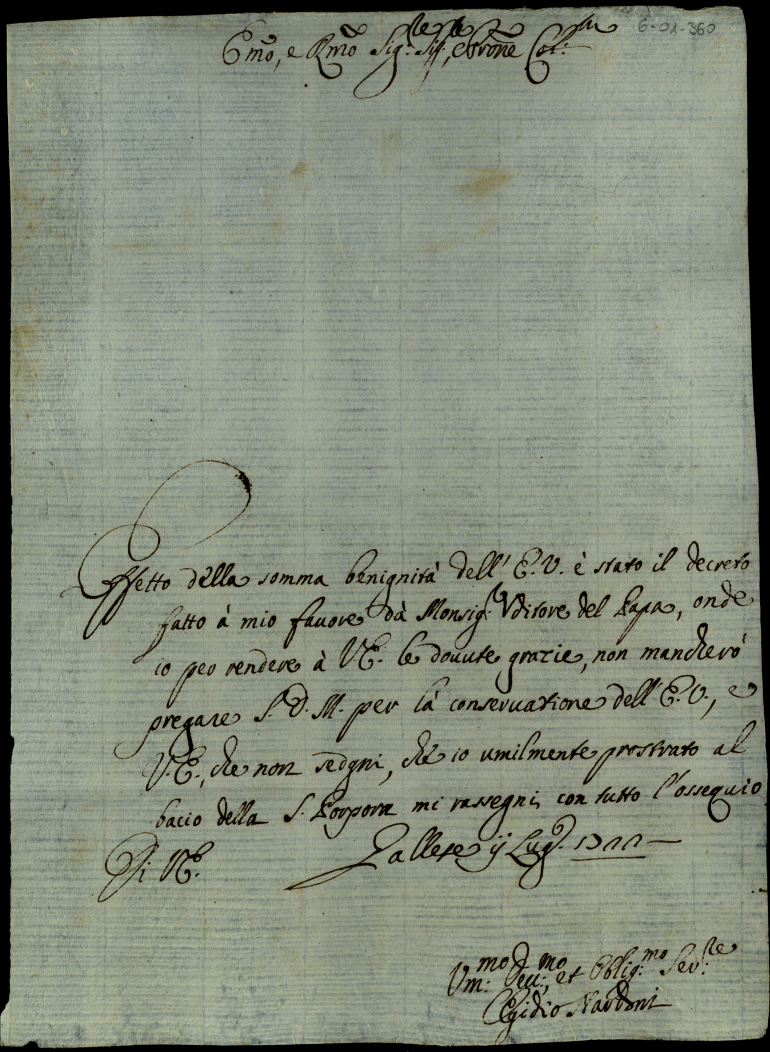 6-01-360
Emo, e Rmo Sig.re Sig.re, e Prone Col.mo
Effetto della somma benignità dell' E. V. è stato il decreto
fatto à mio favore dà Monsig.r Vditore del Papa, onde
io peo rendere à V.E. le douute grazie, non mancherò
pregare S. D. M. per la conseruatione dell' E. V., e
V.E., che non sedgni, che io umilmente prostrato al
bacio della S. Porpora mi rassegni, con tutto l'ossequio
Di V.E. Gallese ij Lug.o 1722
Vm:mo Deu:mo, et Oblig:mo Ser:re
Egidio Nardoni